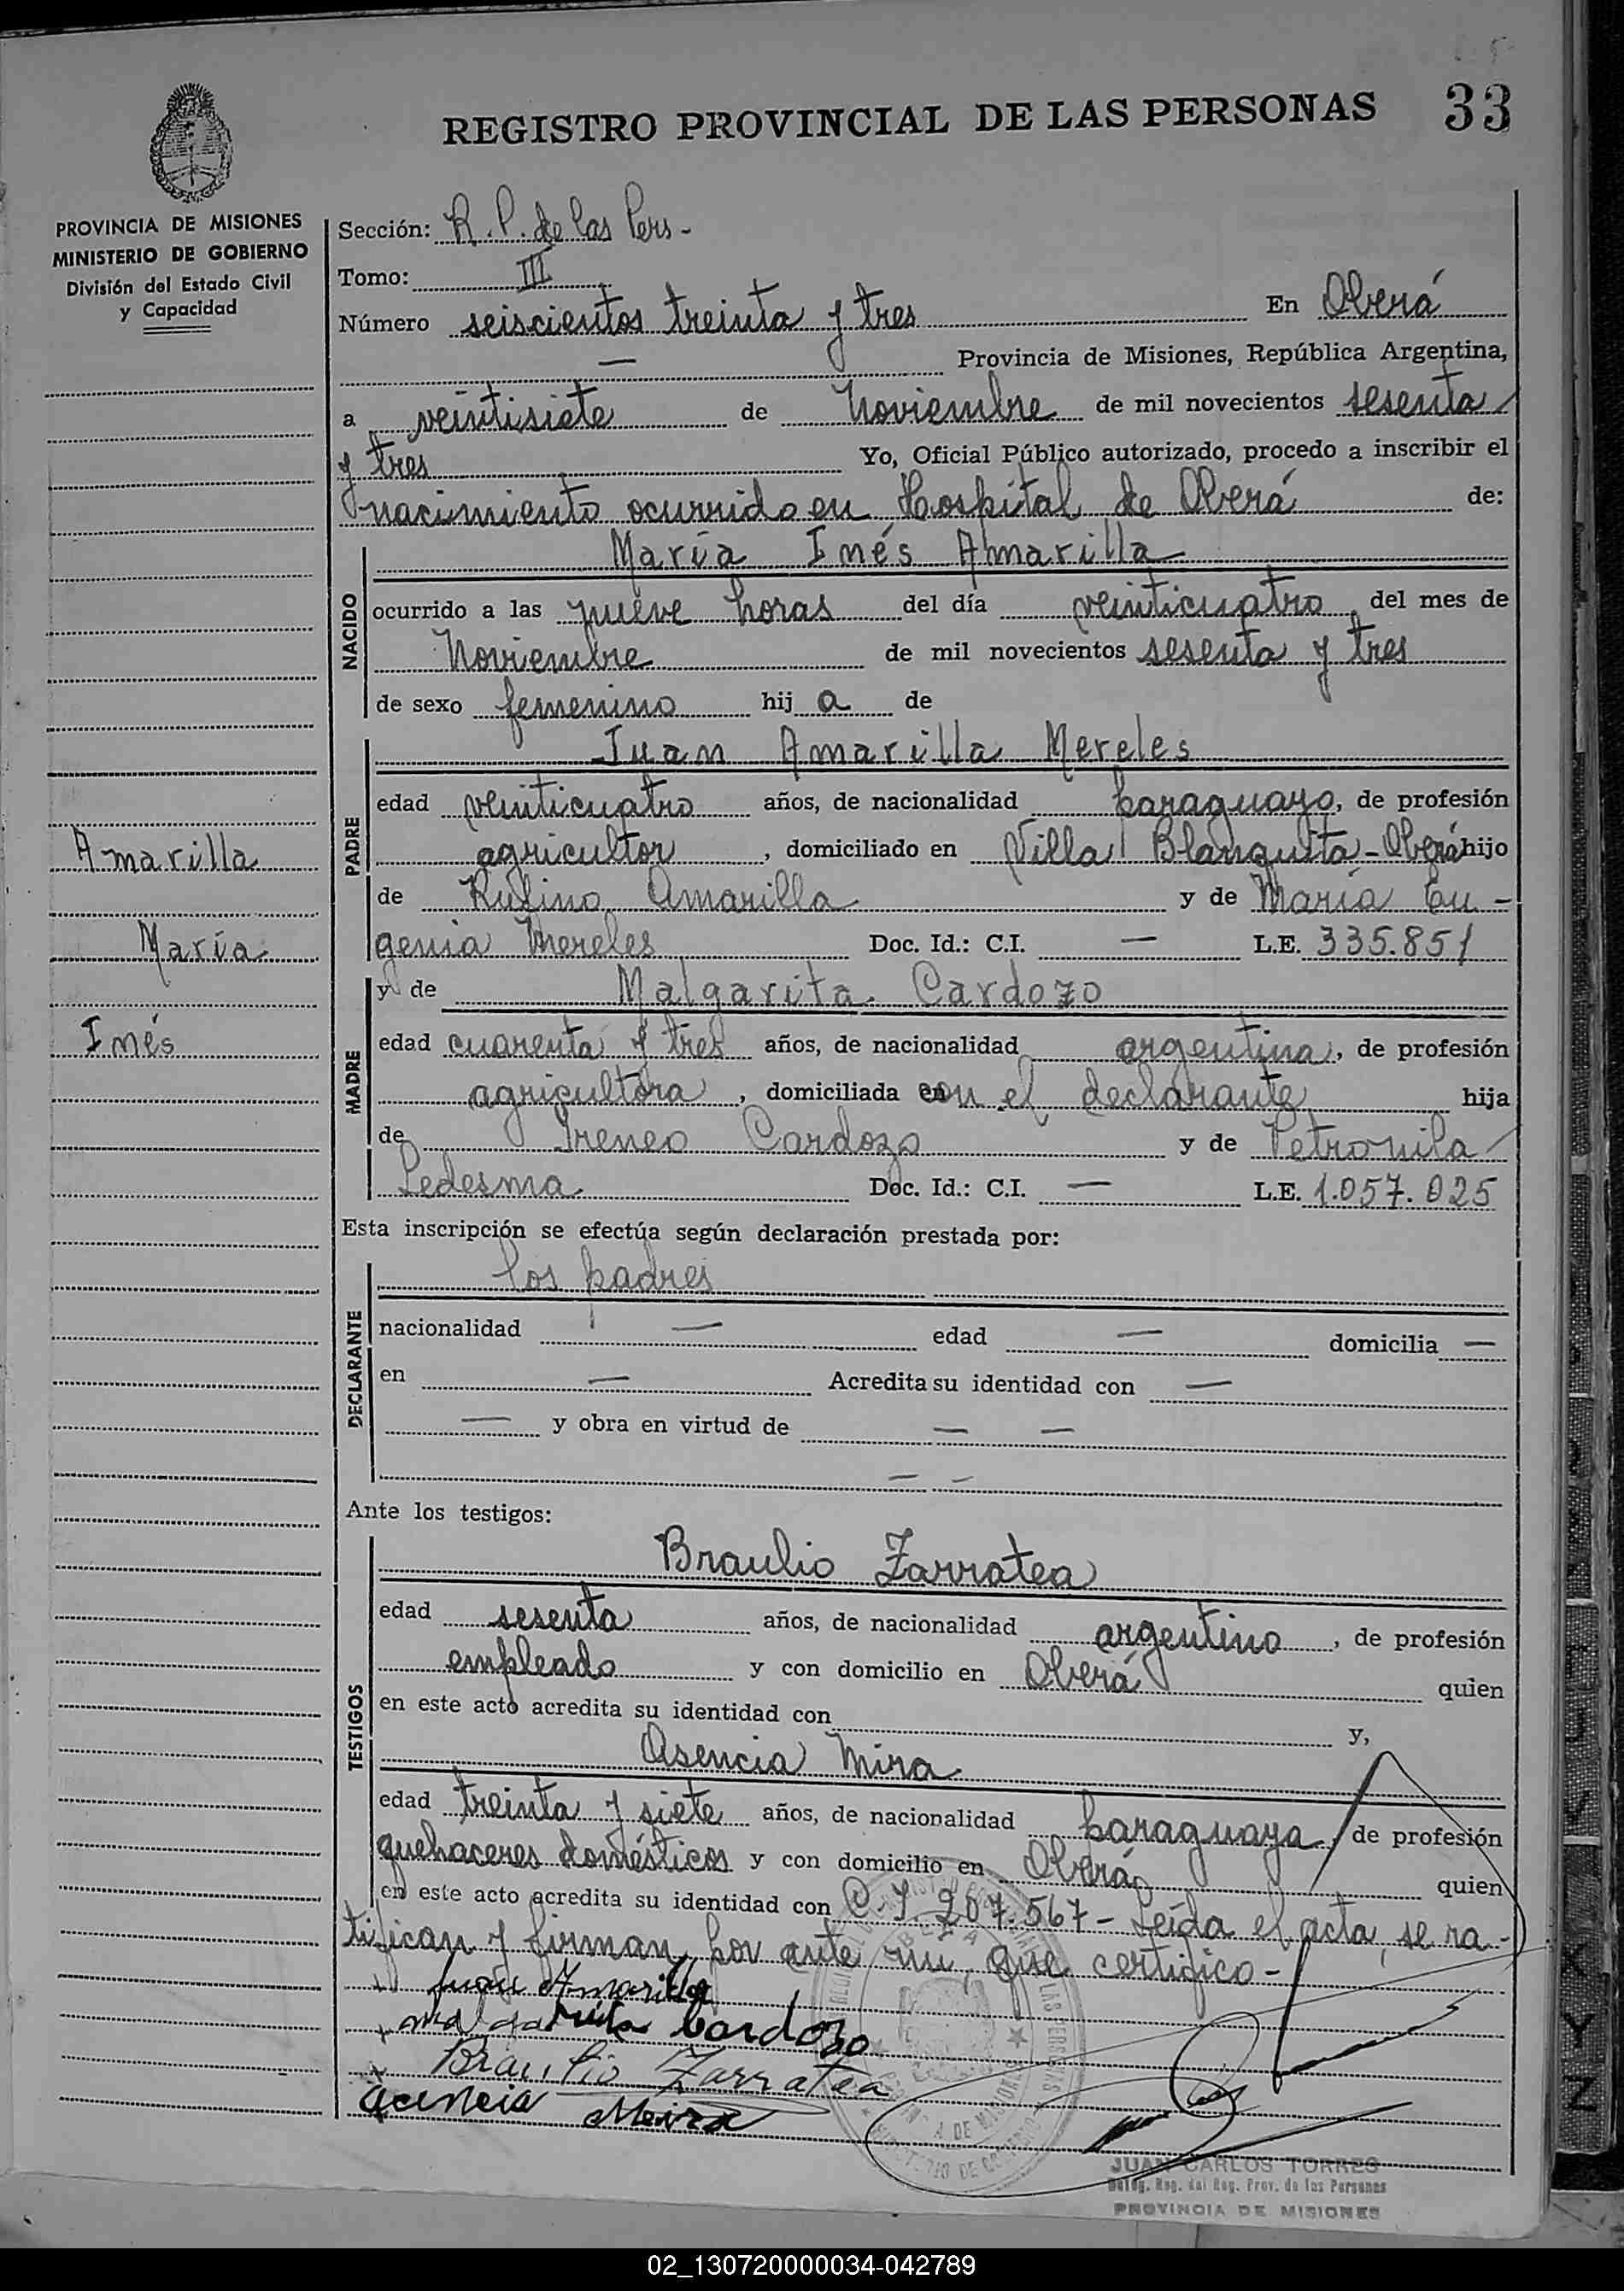 REGISTRO PROVINCIAL DE LAS PERSONAS 33
PROVINCIA DE MISIONES
MINISTERIO DE GOBIERNO
División del Estado Civil
y Capacidad
Sección: R. P. de las Pers -
Tomo: III
Número seiscientos treinta y tres En Oberá
— Provincia de Misiones, República Argentina,
a veintisiete de Noviembre de mil novecientos sesenta
y tres Yo, Oficial Público autorizado, procedo a inscribir el
nacimiento ocurrido en Hospital de Oberá de:
NACIDO
María Inés Amarilla
ocurrido a las nueve horas del día veinticuatro del mes de
Noviembre de mil novecientos sesenta y tres
de sexo femenino hij a de
PADRE
Juan Amarilla Mereles
edad veinticuatro años, de nacionalidad paraguayo, de profesión
agricultor, domiciliado en Villa Blanquita - Oberá hijo
de Rufino Amarilla y de María Eu -
genia Mereles Doc. Id.: C.I. — L.E. 335.851
Amarilla
María
Inés
MADRE
y de Malgarita Cardozo
edad cuarenta y tres años, de nacionalidad argentina, de profesión
agricultora, domiciliada con el declarante hija
de Ireneo Cardozo y de Petronila
Ledesma Doc. Id.: C.I. — L.E. 1.057.025
Esta inscripción se efectúa según declaración prestada por:
DECLARANTE
los padres
nacionalidad — edad — domicilia —
en — Acredita su identidad con —
— y obra en virtud de — —
— —
Ante los testigos:
TESTIGOS
Braulio Zarratea
edad sesenta años, de nacionalidad argentino, de profesión
empleado y con domicilio en Oberá quien
en este acto acredita su identidad con y,
Asencia Mira
edad treinta y siete años, de nacionalidad paraguaya, de profesión
quehaceres domésticos y con domicilio en Oberá quien
en este acto acredita su identidad con C. I. 207.567 - Leída el acta, se ra -
tifican y firman por ante mi, que certifico -
Juan Amarilla
malgarita Cardozo
Braulio Zarratea
Acencia Meira
JUAN CARLOS TORRES
Deleg. Reg. del Reg. Prov. de las Personas
PROVINCIA DE MISIONES
X
Y
Z
02_130720000034-042789